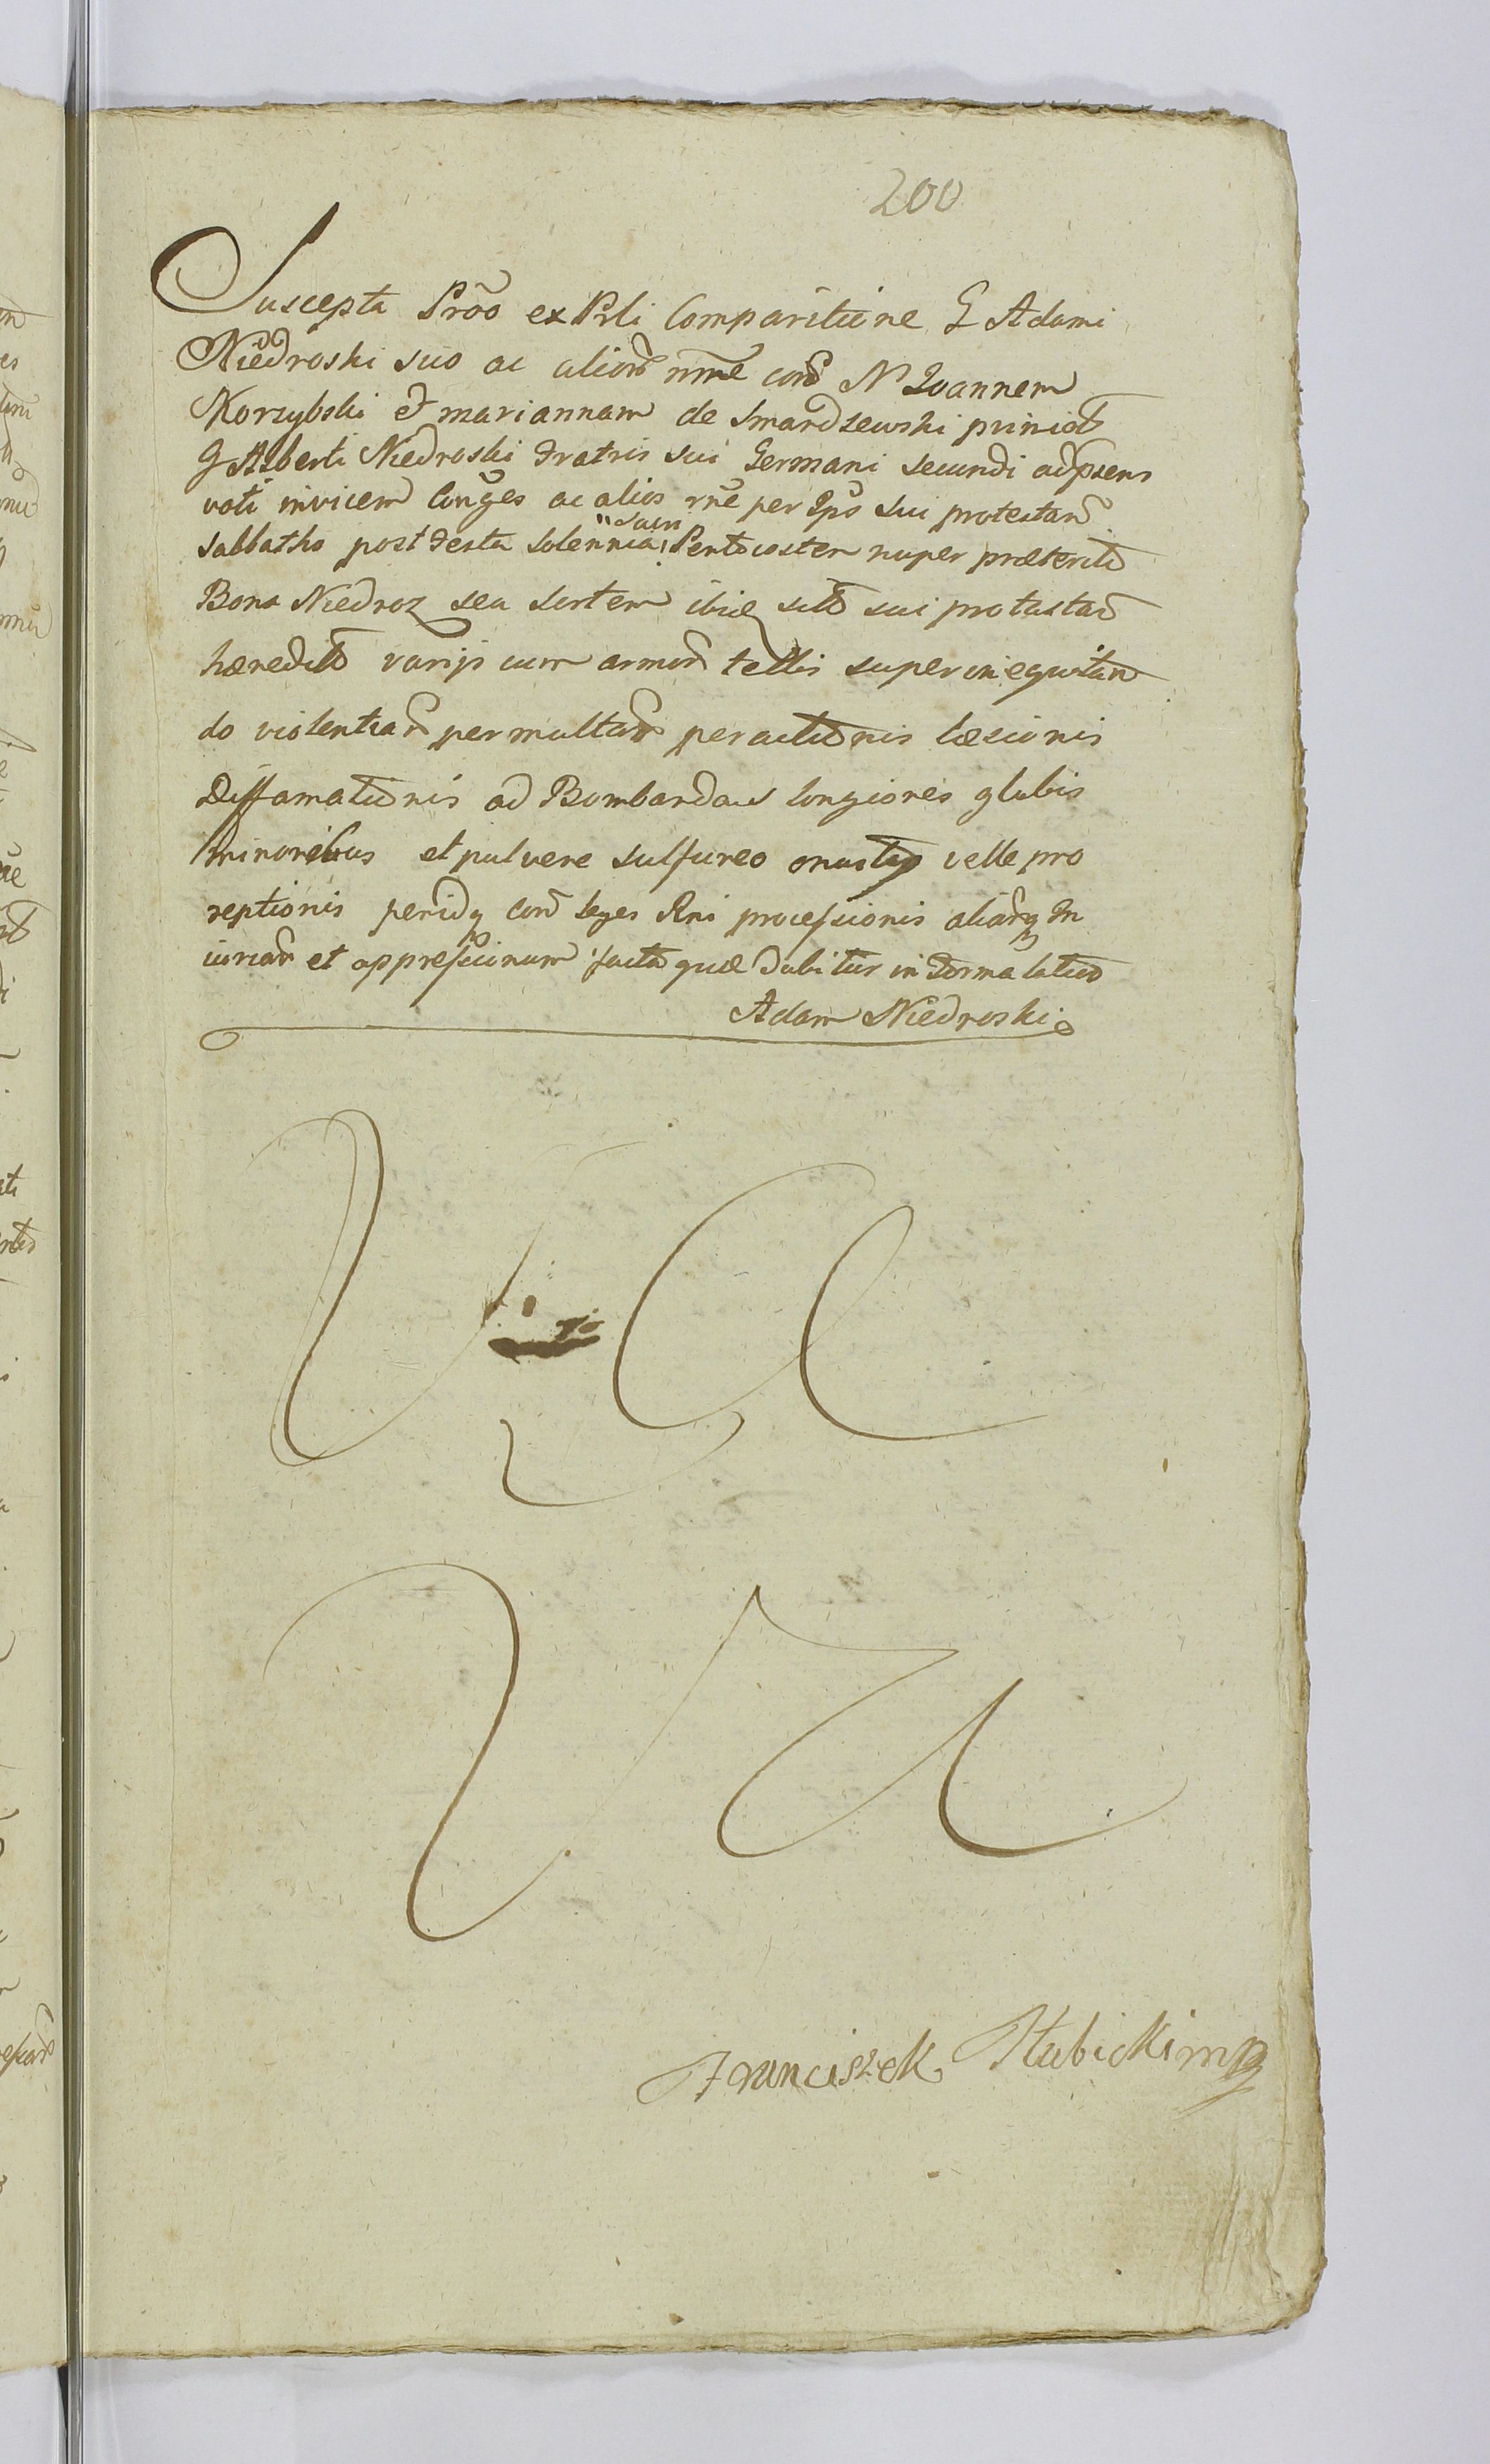 200
Suscepta Prõo ex Prli Comparitione G Adami
Niedroski suo ac alior nme con N Ioannem
Korzybski et mariannam de Smardzewski primot
G Alberti Niedroski Fratris sui Germani secundi ad psens
voti invicem Conges ac alios rne per Ips sui protestan
sabbatho post Festa Solennia Sacri Pentecosten nuper præterit
Bona Niedroz seu sortem ibiq sitt sui protestan
hæredit varijs cum armor tellis superinequitan
do violentiar permultar peractionis læsionis
Diffamationis ad Bombardas longiores globis
minoribus et pulvere sulfureo onustas velle pro
reptionis peridq con leges Rni processionis aliarq In
iuriar et oppressionum facta quæ dabitur in Forma latiori
Adam Niedroski
Franciszek Hubicki mp